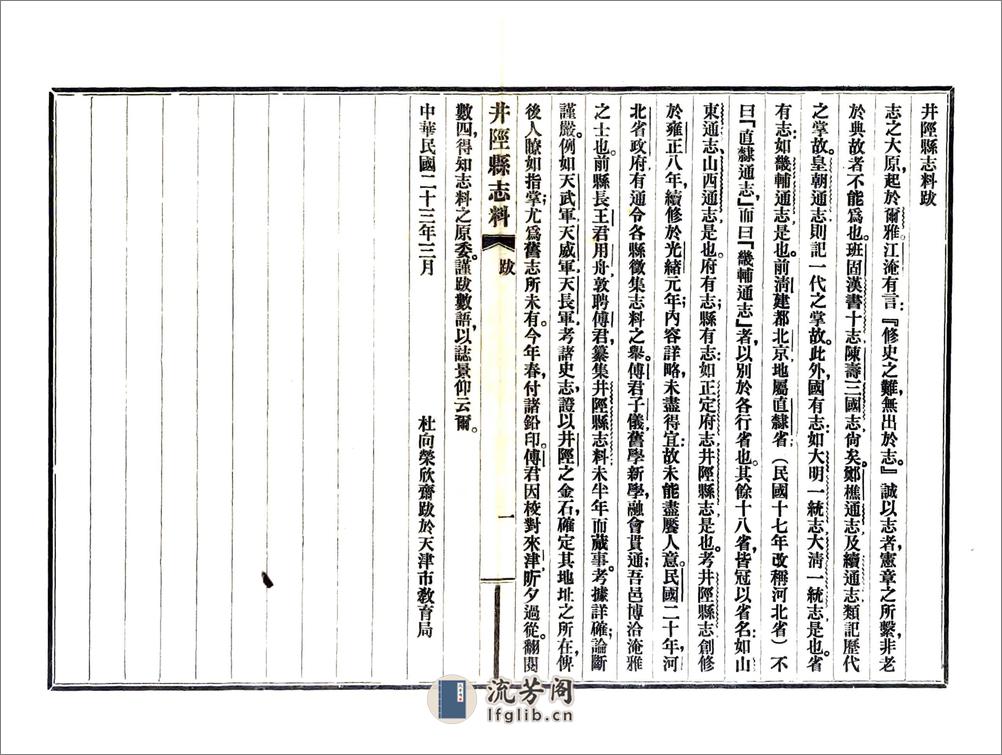 井陘縣志料跋
志之大原，起於爾雅江淹有言：『修史之難，無出於志。』誠以志者，憲章之所繫，非老
於典故者不能爲也。班固漢書十志，陳壽三國志尙矣。鄭樵通志及續通志，類記歷代
之掌故。皇朝通志則記一代之掌故。此外國有志：如大明一統志大淸一統志是也。省
有志：如畿輔通志是也。前淸建都北京，地屬直隸省（民國十七年改稱河北省）不
曰『直隸通志』而曰『畿輔通志』者，以別於各行省也。其餘十八省，皆冠以省名：如山
東通志山西通志是也。府有志；縣有志：如正定府志，井陘縣志是也。考井陘縣志，創修
於雍正八年，續修於光緒元年；內容詳略，未盡得宜；故未能盡饜人意。民國二十年，河
北省政府有通令各縣徵集志料之舉。傅君子儀，舊學新學，融會貫通；吾邑博洽淹雅
之士也。前縣長王君用舟，敦聘傅君，纂集井陘縣志料，未半年而蕆事。考據詳確；論斷
謹嚴。例如天武軍，天威軍，天長軍，考諸史志，證以井陘之金石，確定其地址之所在，俾
後人瞭如指掌；尤爲舊志所未有。今年春，付諸鉛印。傅君因校對來津，昕夕過從。翻閱
井陘縣志料　跋　一
數四，得知志料之原委。謹跋數語，以誌景仰云爾。
中華民國二十三年三月　杜向榮欣齋跋於天津市敎育局
流芳阁
lfglib.cn